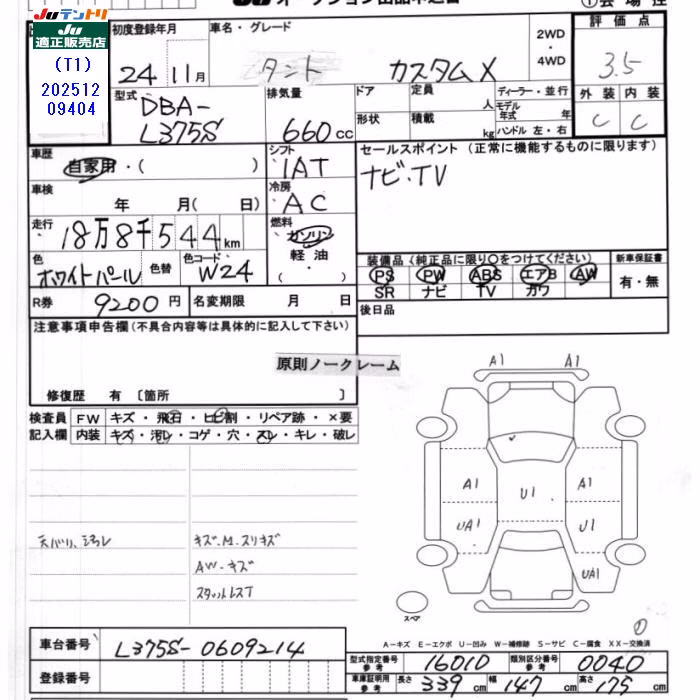 Juテントリ
Ju適正販売店
(T1)
202512
09404
Ju オークション出品申込書
①会場控
初度登録年月
24 11月
車名・グレード
タント カスタムX
2WD
・
4WD
評価点
3.5
外装 内装
C C
型式
DBA-
L375S
排気量
660cc
ドア
定員
人
形状
積載
kg
ディーラー・並行
モデル年式 年
ハンドル 左・右
車歴
自家用・( )
シフト
IAT
セールスポイント (正常に機能するものに限ります)
ナビ・TV
車検
年 月( 日)
冷房
AC
走行
18万8千544km
燃料
ガソリン
軽油
( )
色
ホワイトパール
色替
色コード
W24
装備品 (純正品に限り○をつけてください)
PS PW ABS エアB AW
SR ナビ TV カワ
新車保証書
有・無
R券 9200円
名変期限 月 日
後日品
注意事項申告欄(不具合内容等は具体的に記入して下さい)
原則ノークレーム
修復歴 有 〔箇所 〕
検査員
記入欄
FW キズ・飛石・ヒビ割・リペア跡・×要
内装 キズ・汚レ・コゲ・穴・スレ・キレ・破レ
天バリ、シミレ
キズ.M.スリキズ
AW-キズ
スタットレスT
A1 A1
A1 U1 A1
UA1 U1
UA1
スペア
①
A−キズ E−エクボ U−凹み W−補修跡 S−サビ C−腐食 XX−交換済
車台番号 L375S-0609214
登録番号
型式指定番号 参考 16010
類別区分番号 参考 0040
車庫証明用 参考 長さ 339cm 幅 147cm 高さ 175cm